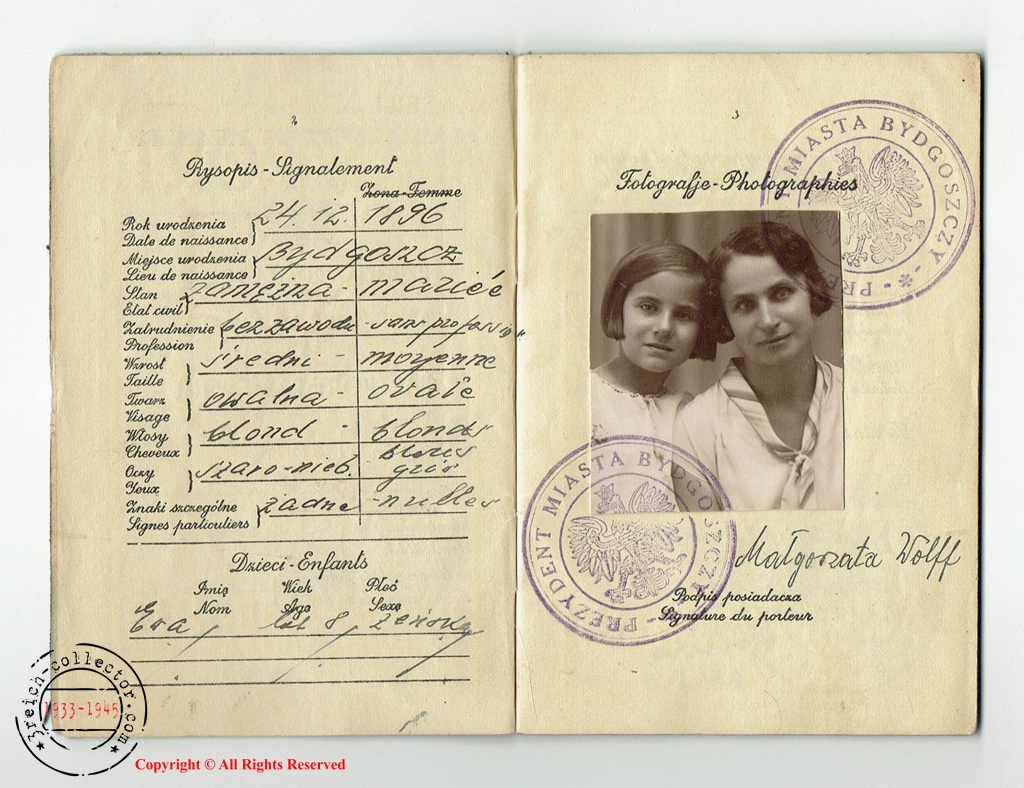 2
Rysopis - Signalement
Żona - Femme
Rok urodzenia
Date de naissance
24. 12. 1896
Miejsce urodzenia
Lieu de naissance
Bydgoszcz
Stan
Etat civil
zamężna - mariée
Zatrudnienie
Profession
bez zawodu - sans profess
Wzrost
Taille
średni - moyenne
Twarz
Visage
owalna - ovale
Włosy
Cheveux
blond - blonds
Oczy
Yeux
szaro-nieb. bleus gris
Znaki szczególne
Signes particuliers
żadne - nulles
Dzieci - Enfants
Imię Wiek Płeć
Nom Age Sexe
Ewa lat 8 żeńska
3
Fotografje - Photographies
PREZYDENT MIASTA BYDGOSZCZY
PREZYDENT MIASTA BYDGOSZCZY
Małgorzata Wolff
Podpis posiadacza
Signature du porteur
3reich-collector.com
1933-1945
Copyright © All Rights Reserved